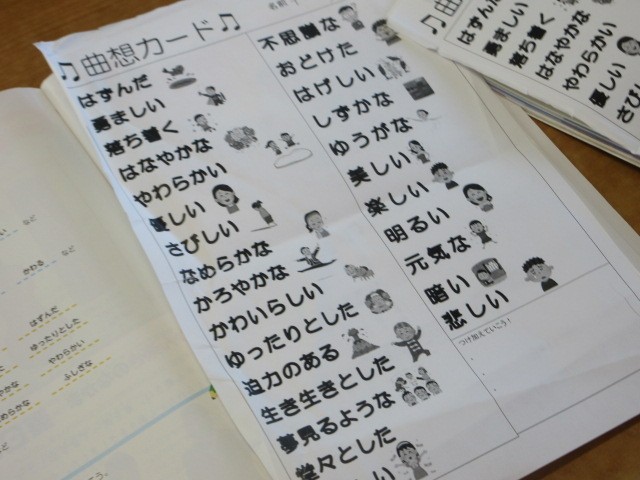 ♫曲想カード♫
名前
はずんだ
勇ましい
落ち着く
はなやかな
やわらかい
優しい
さびしい
なめらかな
かろやかな
かわいらしい
ゆったりとした
迫力のある
生き生きとした
夢見るような
堂々とした
しい
不思議な
おどけた
はげしい
しずかな
ゆうがな
美しい
楽しい
明るい
元気な
暗い
悲しい
つけ加えていこう！
はずんだ
勇ましい
落ち着く
はなやかな
やわらかい
優しい
さびし
など
かわる など
はずんだ
ゆったりとした
やわらかい
ふしぎな